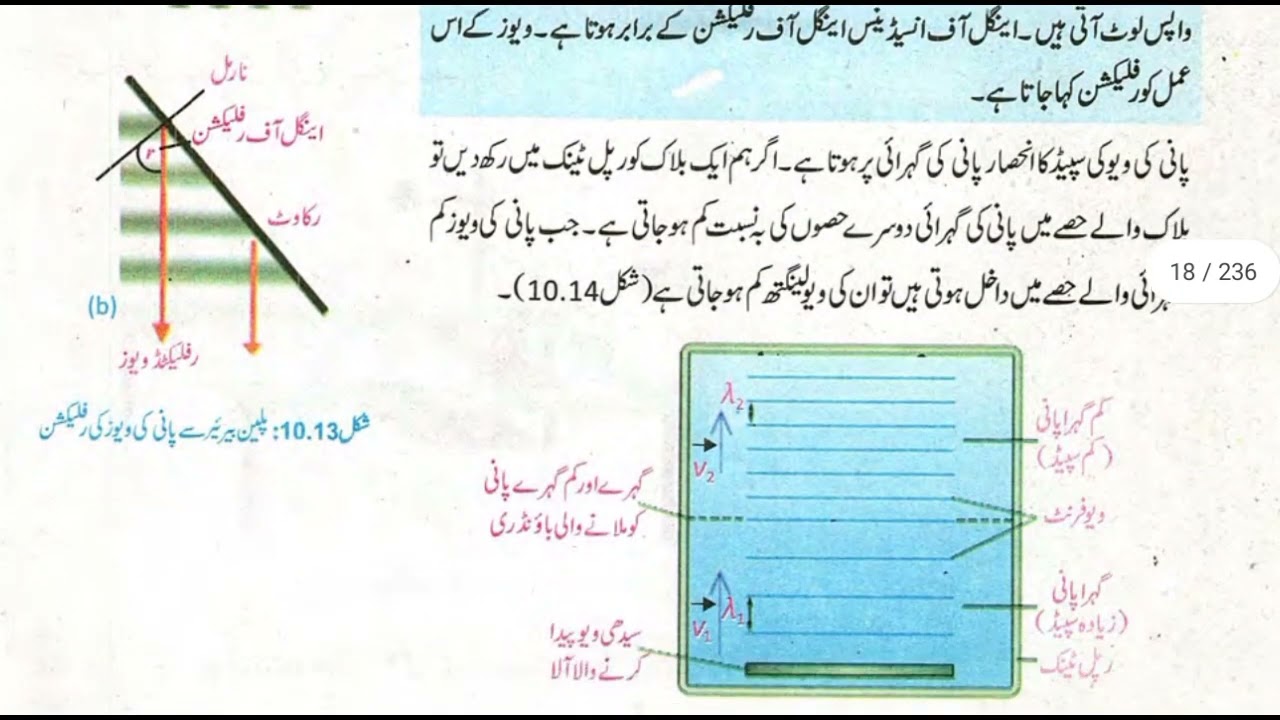 واپس لوٹ آتی ہیں۔ اینگل آف انسیڈینس اینگل آف رفلیکشن کے برابر ہوتا ہے۔ ویوز کے اس
عمل کو رفلیکشن کہا جاتا ہے۔
پانی کی ویو کی سپیڈ کا انحصار پانی کی گہرائی پر ہوتا ہے۔ اگر ہم ایک بلاک کو رپل ٹینک میں رکھ دیں تو
بلاک والے حصے میں پانی کی گہرائی دوسرے حصوں کی بہ نسبت کم ہو جاتی ہے۔ جب پانی کی ویوز کم
ہرائی والے حصے میں داخل ہوتی ہیں تو ان کی ویولینگتھ کم ہو جاتی ہے (شکل 10.14)۔
18 / 236
نارمل
اینگل آف رفلیکشن
r
رکاوٹ
(b)
رفلیکٹڈ ویوز
شکل 10.13: پلین بیریئر سے پانی کی ویوز کی رفلیکشن
λ2
v2
کم گہرا پانی
(کم سپیڈ)
گہرے اور کم گہرے پانی
کو ملانے والی باؤنڈری
ویو فرنٹ
λ1
v1
گہرا پانی
(زیادہ سپیڈ)
سیدھی ویو پیدا
کرنے والا آلا
رپل ٹینک